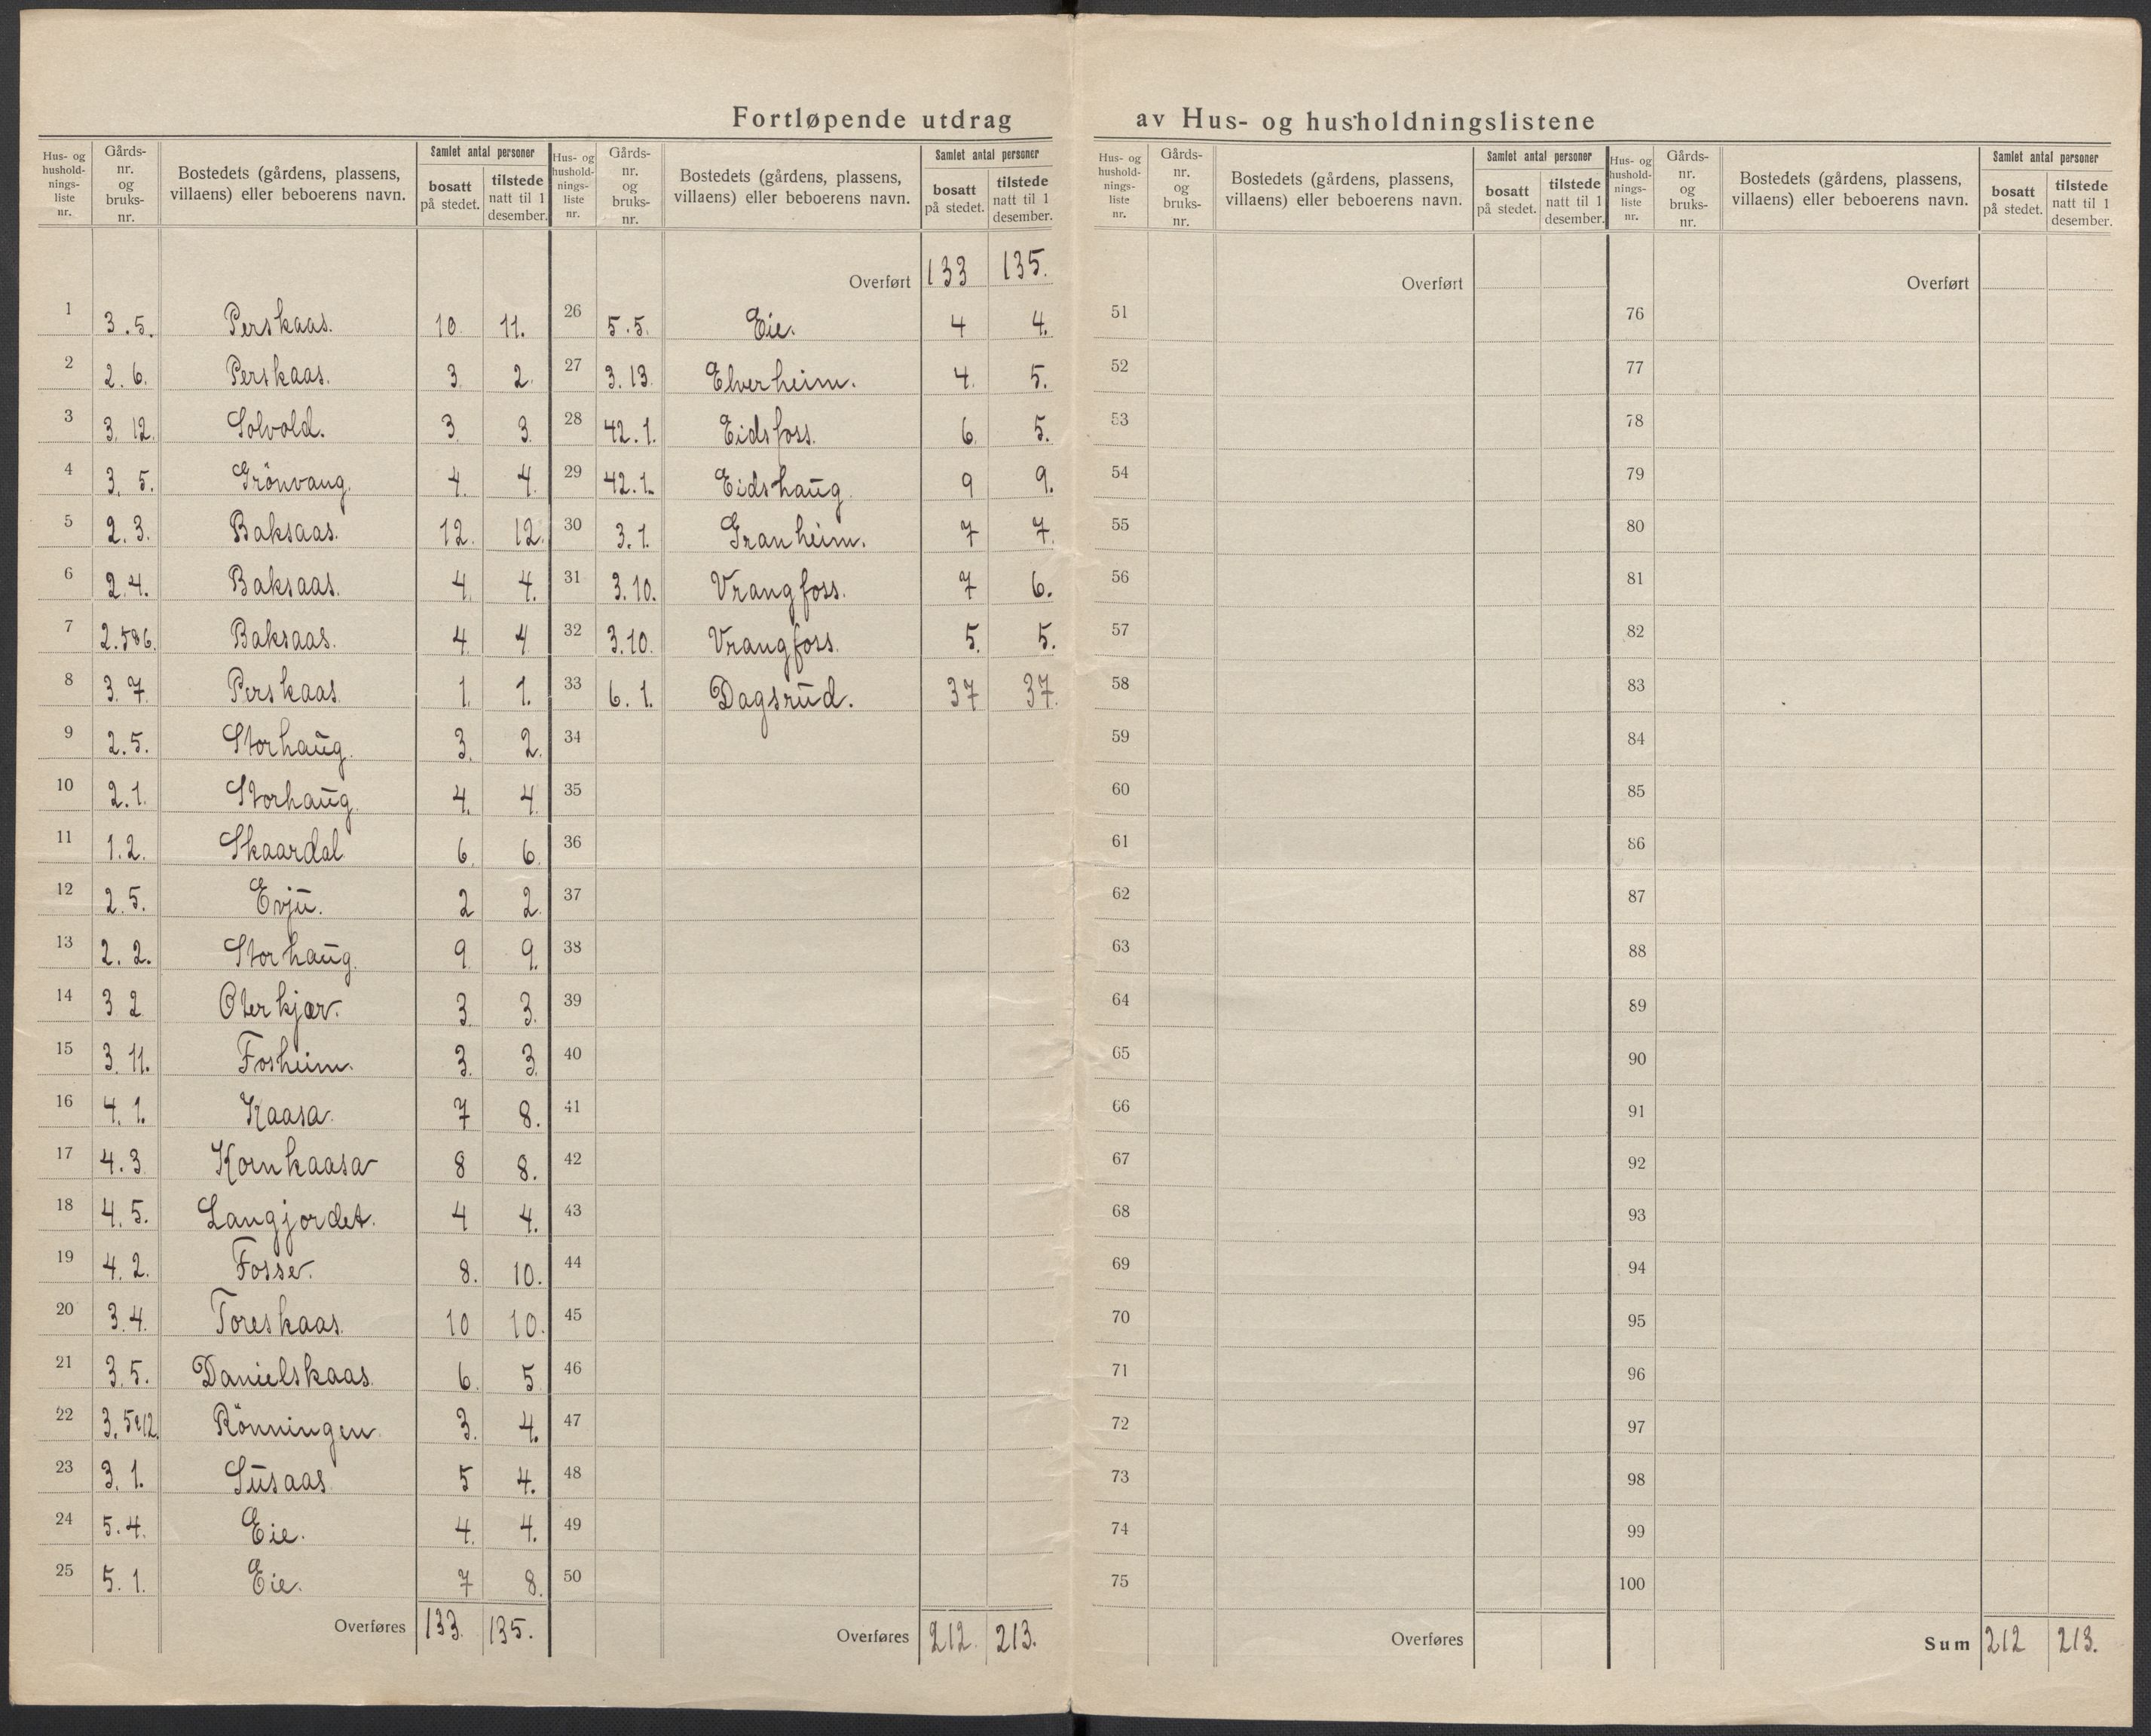 Fortløpende utdrag av Hus- og husholdningslistene
Hus- og hushold-nings-liste nr. Gårds-nr. og bruks-nr. Bostedets (gårdens, plassens, villaens) eller beboerens navn. Samlet antal personer bosatt på stedet. tilstede natt til 1 desember.
1 3.5. Perskaas. 10. 11.
2 2.6. Perskaas. 3. 2.
3 3.12. Solvold. 3. 3.
4 3.5. Grönvang. 4. 4.
5 2.3. Baksaas. 12. 12.
6 2.4. Baksaas. 4. 4.
7 2.5&6. Baksaas. 4 4
8 3.7. Perskaas. 1. 1.
9 2.5. Storhaug. 3. 2.
10 2.1. Storhaug. 4. 4.
11 1.2. Skaardal. 6. 6.
12 2.5. Evju. 2 2.
13 2.2. Storhaug. 9. 9.
14 3 2 Oterkjær. 3. 3.
15 3.11. Fosheim. 3. 3.
16 4.1. Kaasa. 7 8.
17 4.3 Kornkaasa 8 8.
18 4.5. Langjordet. 4 4.
19 4.2. Fosse. 8. 10.
20 3.4. Toreskaas. 10 10.
21 3.5. Danielskaas. 6. 5
22 3.5&12. Rönningen. 3. 4.
23 3.1. Susaas 5 4.
24 5.4. Eie. 4. 4.
25 5.1. Eie. 7 8.
Overføres 133. 135.
Hus- og hushold-nings-liste nr. Gårds-nr. og bruks-nr. Bostedets (gårdens, plassens, villaens) eller beboerens navn. Samlet antal personer bosatt på stedet. tilstede natt til 1 desember.
Overført 133 135.
26 5.5. Eie. 4 4.
27 3.13. Elverheim. 4. 5.
28 42.1. Eidsfoss. 6. 5.
29 42.1. Eidshaug. 9 9.
30 3.1. Granheim. 7 7.
31 3.10. Vrangfoss. 7 6.
32 3.10. Vrangfoss. 5. 5.
33 6.1. Dagsrud. 37 37.
34
35
36
37
38
39
40
41
42
43
44
45
46
47
48
49
50
Overføres 212. 213.
Hus- og hushold-nings-liste nr. Gårds-nr. og bruks-nr. Bostedets (gårdens, plassens, villaens) eller beboerens navn. Samlet antal personer bosatt på stedet. tilstede natt til 1 desember.
Overført
51
52
53
54
55
56
57
58
59
60
61
62
63
64
65
66
67
68
69
70
71
72
73
74
75
Overføres
Hus- og hushold-nings-liste nr. Gårds-nr. og bruks-nr. Bostedets (gårdens, plassens, villaens) eller beboerens navn. Samlet antal personer bosatt på stedet. tilstede natt til 1 desember.
Overført
76
77
78
79
80
81
82
83
84
85
86
87
88
89
90
91
92
93
94
95
96
97
98
99
100
Sum 212 213.